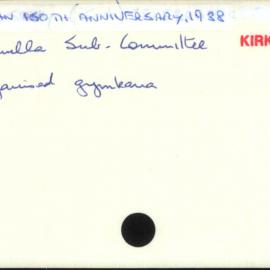 AN 150TH ANNIVERSARY, 1988
Sub-Committee
KIRK
ganised gymkana